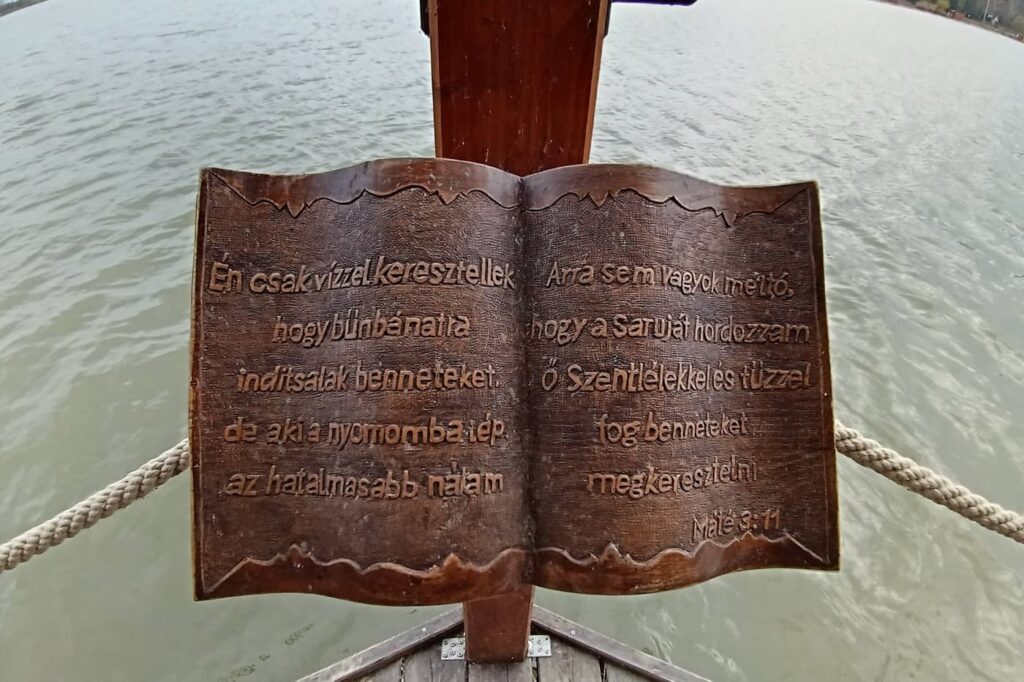 Én csak vízzel keresztellek
hogy bűnbánatra
indítsalak benneteket,
de aki a nyomomba lép,
az hatalmasabb nálam
Arra sem vagyok méltó,
hogy a saruját hordozzam
Ő Szentlélekkel és tűzzel
fog benneteket
megkeresztelni
Máté 3:11